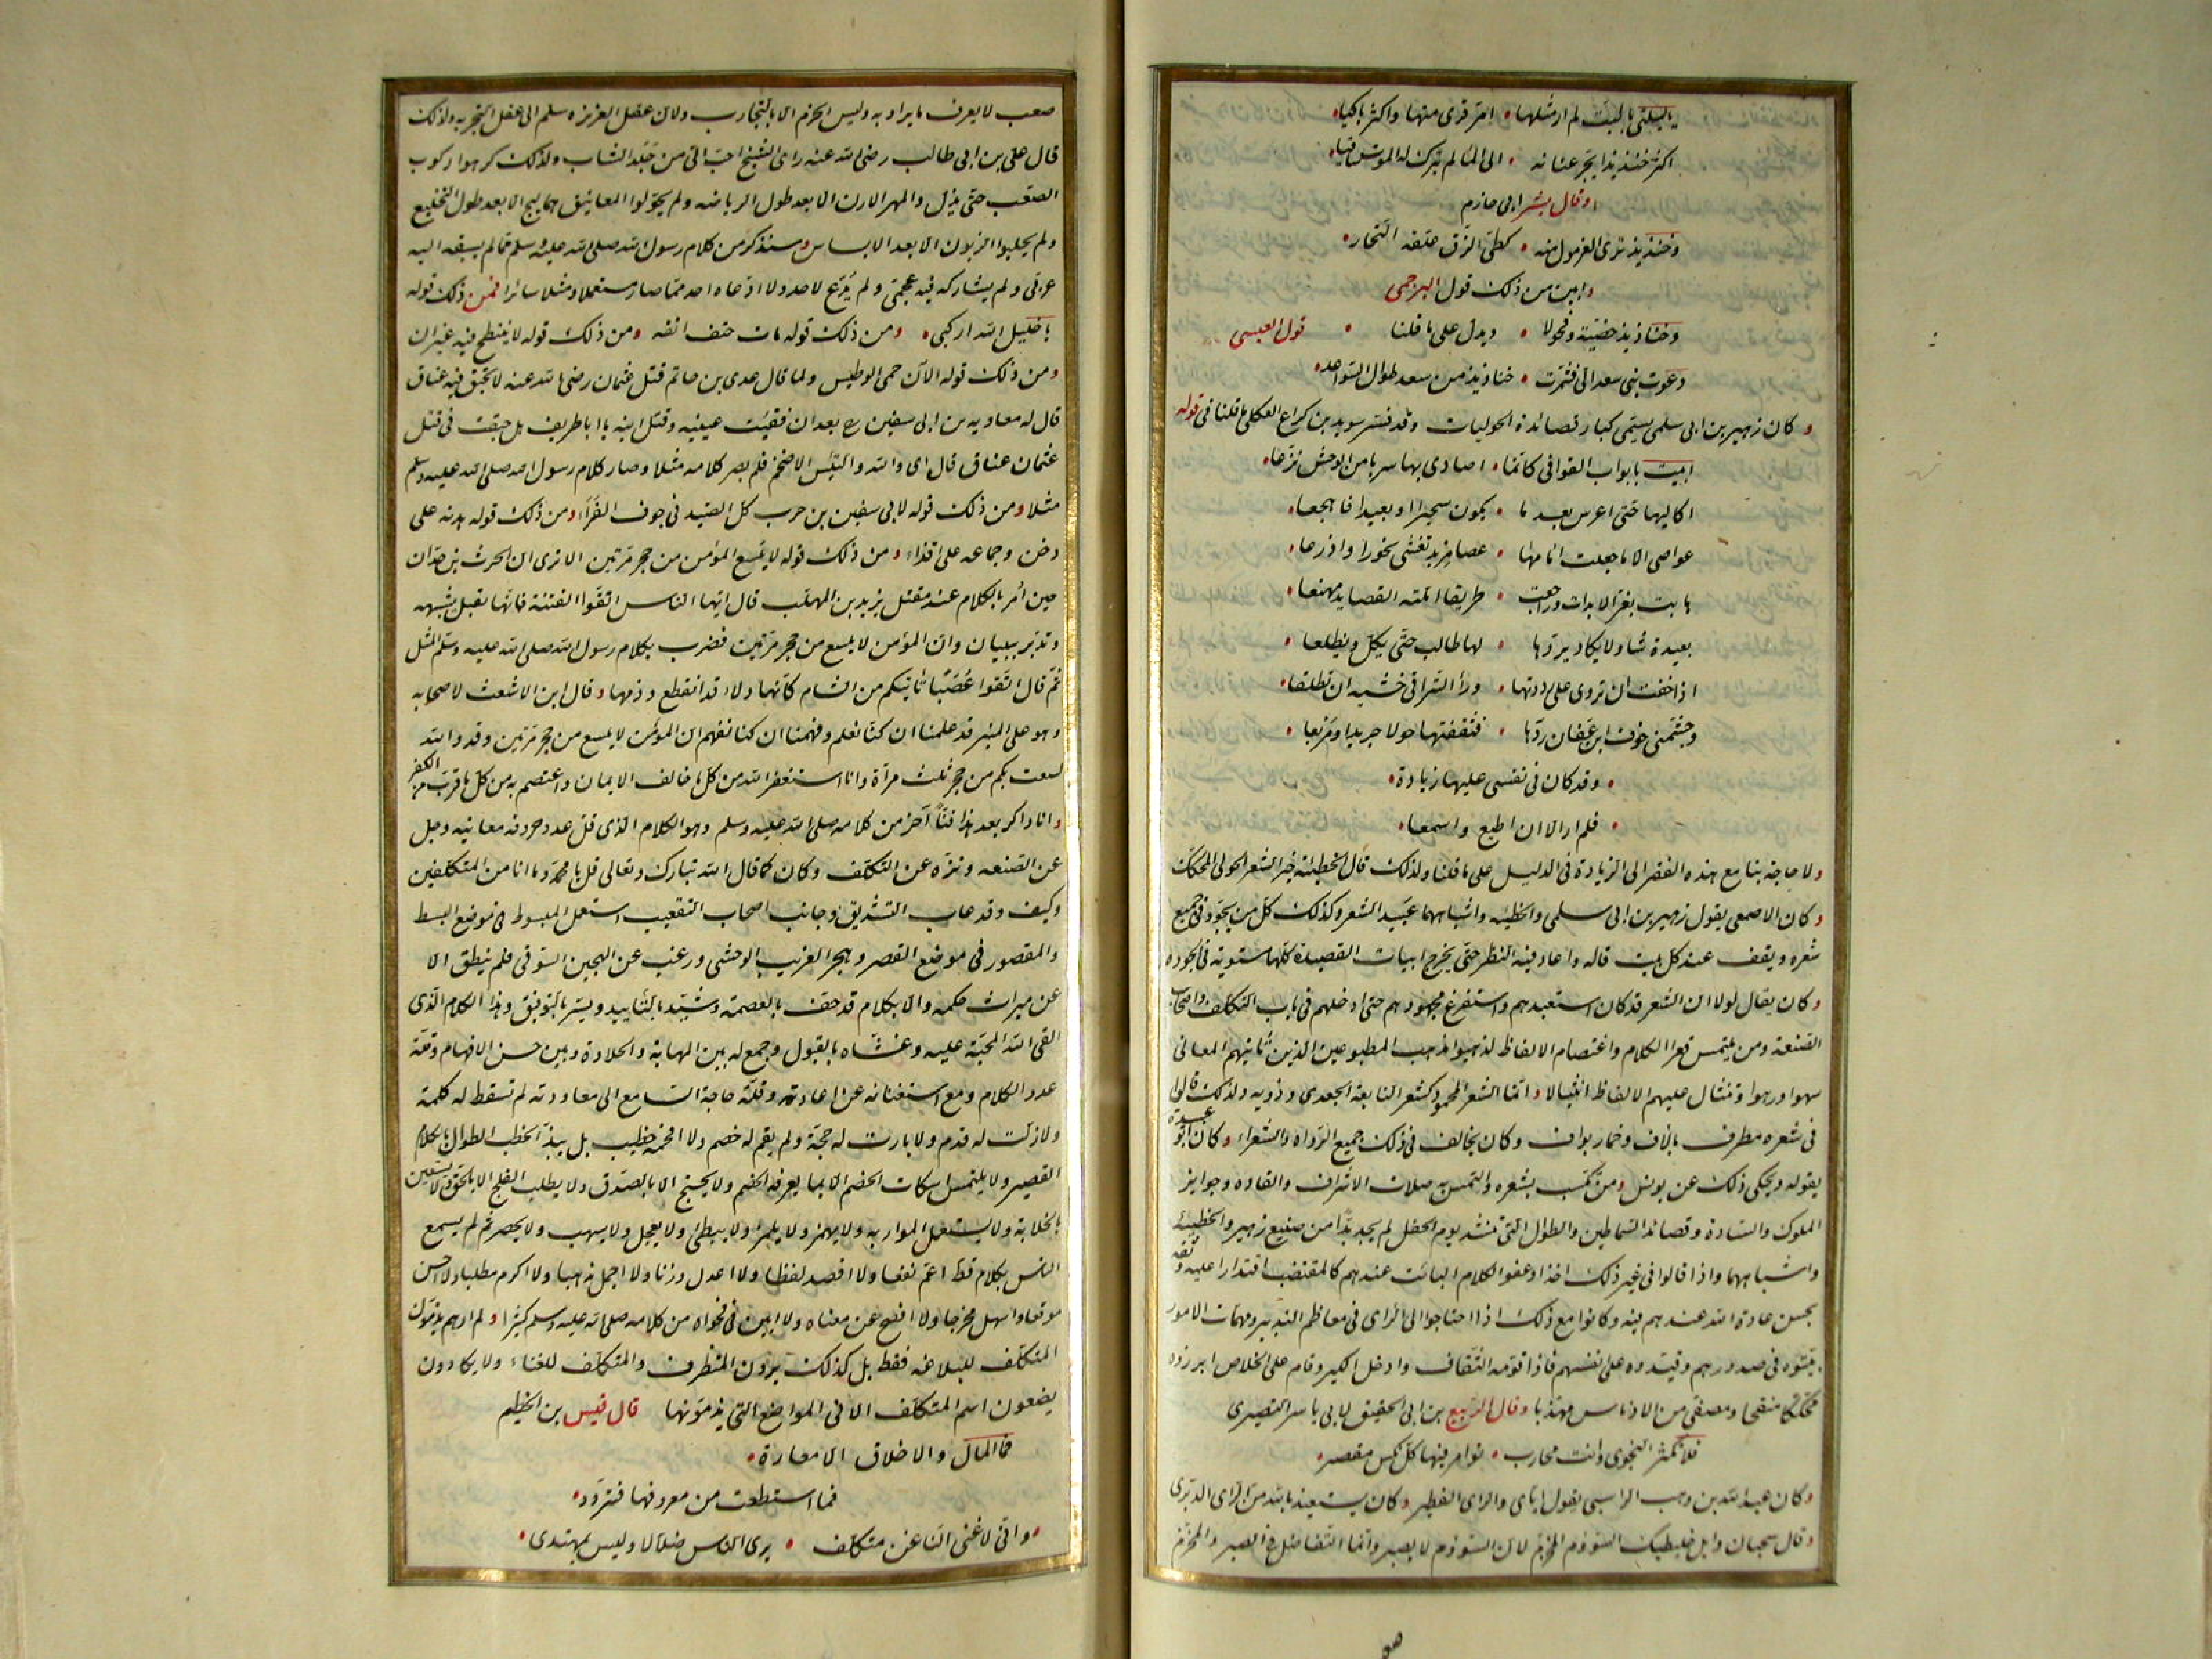 يا ليلتي بالليت لم ار مثلها • امرّ قرى منها واكثر باكيا •
اكثر خنذيذا يجر عنانه • الى الماء لم يترك له الموت ساقيا •
وقال بشر ابي حازم
وخنذيذ ترى الغرمول منه • كطي الزق علقه التجار •
وابين من ذلك قول البرجمي
وخناذيذ خصية وفحولا • ويدل على ما قلنا • قول العبسي
دعوت بني سعد اليّ فشمرت • خناذيذ من سعد طوال السواعد •
وكان زهير بن ابي سلمى يسمّى كبار قصائده الحوليات وقد فسّر سويد بن كراع العكلي ما قلنا في قوله
ابيت بابواب القوافي كانما • اصادي بها سربا من الوحش نزعا •
اكاليها حتى اعرس بعد ما • يكون سحيرا او بعيدا فاهجعا •
عواصي الا ما جعلت امامها • عصا مربد تغشى نحورا واذرعا •
اهابت بغر الابدات وراجعت • طريقا املته القصايد مهيعا •
بعيدة شاو لا يكاد يردها • لها طالب حتى يكل ويظلعا •
اذا خفت ان تروى علي رددتها • وراء التراقي خشية ان تطلعا •
وجشمني خوف ابن عفان ردها • فثقفتها حولا جريدا ومربعا •
• وقد كان في نفسي عليها زيادة •
• فلم ار الا ان اطيع واسمعا •
ولا حاجة بنا مع هذه الفقر الى الزيادة في الدليل على ما قلنا ولذلك قال الحطيئة خير الشعر الحولي المحكك
وكان الاصمعي يقول زهير بن ابي سلمى والحطيئة واشباههما عبيد الشعر وكذلك كل من يجود في جميع
شعره ويقف عند كل بيت قاله واعاد فيه النظر حتى يخرج ابيات القصيدة كلها مستوية في الجودة
وكان يقال لولا ان الشعر قد كان استعبدهم واستفرغ مجهودهم حتى ادخلهم في باب التكلف واصحاب
الصنعة ومن يلتمس قهر الكلام واغتصام الالفاظ لذهبوا مذهب المطبوعين الذين تاتيهم المعاني
سهوا ورهوا وتنثال عليهم الالفاظ انثيالا وانما الشعر المحمود كشعر النابغة الجعدي وذويه ولذلك قالوا
في شعره مطرف بآلاف وخمار بواف وكان يخالف في ذلك جميع الرواة والشعراء وكان ابو عبيدة
يقوله ويحكي ذلك عن يونس ومن تكسب بشعره والتمس به صلات الاشراف والقادة وجوايز
الملوك والسادة وقصائد السماطين والطوال التي تنشد يوم الحفل لم يجد بدا من صنيع زهير والحطيئة
واشباههما واذا قالوا في غير ذلك اخذوا عفو الكلام البائت عندهم كالمقتضب اقتدارا عليه وثقة
بحسن عادة الله عندهم فيه وكانوا مع ذلك اذا احتاجوا الى الراى في معاظم التدبير ومهمات الامور
بيتوه في صدورهم وقيدوه على نفسهم فاذا قومه الثقاف وادخل الكير وقام على الخلاص ابرزوه
محككا منقحا ومصفى من الادناس مهذبا وقال الربيع بن ابي الحقيق لابي ياسر النضيري
فلا تكثر النجوى وانت محارب • توامر فيها كل نكس مقصر •
وكان عبد الله بن وهب الراسبي يقول اياى والراى الفطير وكان يستعيذ بالله من الراى الدبرى
وقال سحبان وايل
صعب لا يعرف ما يراد به وليس الحزم الا بالتجارب ولان عقل الغريزة سلم الى عقل التجربه ولذلك
قال علي بن ابي طالب رضى الله عنه راى الشيخ احب الي من جلد الشاب ولذلك كرهوا ركوب
الصعب حتى يذل والمهر الارن الا بعد طول الرياضه ولم يحولوا المعانيق هماليج الا بعد طول التخليع
ولم يحلبوا الزبون الا بعد الابساس وسنذكر من كلام رسول الله صلى الله عليه وسلم مما لم يسبقه اليه
عربي ولم يشاركه فيه عجمي ولم يدع لاحد ولا ادعاه احد مما صار مستعملا ومثلا سائرا فمن ذلك قوله
يا خليل الله اركبي • ومن ذلك قوله مات حتف انفه ومن ذلك قوله لا ينتطح فيه عنزان
ومن ذلك قوله الآن حمي الوطيس ولما قال عدي بن حاتم قتل عثمان رضى الله عنه لا تحبق فيه عناق
قال له معاويه بن ابي سفين بعد ان فقئت عينيه وقتل ابنه يا ابا طريف بل حبقت في قتل
عثمان عناق قال اى والله والتيس الاضخم فلم يصر كلامه مثلا وصار كلام رسول الله صلى الله عليه وسلم
مثلا ومن ذلك قوله لابي سفين بن حرب كل الصيد في جوف الفرا ومن ذلك قوله هدنه على
دخن وجماعه على اقذاء ومن ذلك قوله لا يلسع المؤمن من جحر مرتين الا ترى ان الحرث بن حدان
حين امر بالكلام عند مقتل يزيد بن المهلب قال ايها الناس اتقوا الفتنة فانها تقبل بشبهه
وتدبر ببيان وان المؤمن لا يلسع من جحر مرتين فضرب بكلام رسول الله صلى الله عليه وسلم المثل
ثم قال اتقوا عصبا تاتيكم من الشام كانها دلاء قد انقطع وذمها وقال ابن الاشعث لاصحابه
وهو على المنبر قد علمنا ان كنا نعلم وفهمنا ان كنا نفهم ان المؤمن لا يلسع من جحر مرتين وقد والله
لسعت بكم من جحر ثلث مرات وانا استغفر الله من كل ما خالف الايمان واعتصم به من كل ما قرب من الكفر
وانا ذاكر بعد هذا فنا آخر من كلامه صلى الله عليه وسلم وهو الكلام الذى قل عدد حروفه معانيه وجل
عن الصنعه ونزه عن التكلف وكان كما قال الله تبارك وتعالى قل يا محمد وما انا من المتكلفين
وكيف وقد عاب التشديق وجانب اصحاب التقعيب استعمل المبسوط في موضع البسط
والمقصور في موضع القصر وهجر الغريب الوحشى ورغب عن الهجين السوقى فلم ينطق الا
عن ميراث حكمه والا بكلام قد حف بالعصمة وشيد بالتاييد ويسر بالتوفيق وهذا الكلام الذى
القى الله المحبة عليه وغشاه بالقبول وجمع له بين المهابة والحلاوة وبين حسن الافهام وقلة
عدد الكلام ومع استغنائه عن اعادته وقلة حاجة السامع الى معاودته لم تسقط له كلمة
ولا زلت له قدم ولا بارت له حجة ولم يقم له خصم ولا افحمه خطيب بل يبذ الخطب الطوال بالكلام
القصير ولا يلتمس اسكات الخصم الا بما يعرفه الخصم ولا يحتج الا بالصدق ولا يطلب الفلج الا بالحق ولا يستعين
بالخلابة ولا يستعمل المواربه ولا يهمز ولا يلمز ولا يبطئ ولا يعجل ولا يسهب ولا يحصر ثم لم يسمع
الناس بكلام قط اعم نفعا ولا اقصد لفظا ولا اعدل وزنا ولا اجمل مذهبا ولا اكرم مطلبا ولا احسن
موقعا ولا اسهل مخرجا ولا افصح عن معناه ولا ابين في فحواه من كلامه صلى الله عليه وسلم كثيرا ولم ارهم يذمون
المتكلف للبلاغه فقط بل كذلك يرون المتظرف والمتكلف للغناء ولا يكادون
يضعون اسم المتكلف الا في المواضع التي يذمونها قال قيس بن الخطيم
فما المال والاخلاق الا معارة •
فما استطعت من معروفها فتزود •
• واني لاغنى الناس عن متكلف • يرى الناس ضلالا وليس بمهتدى •